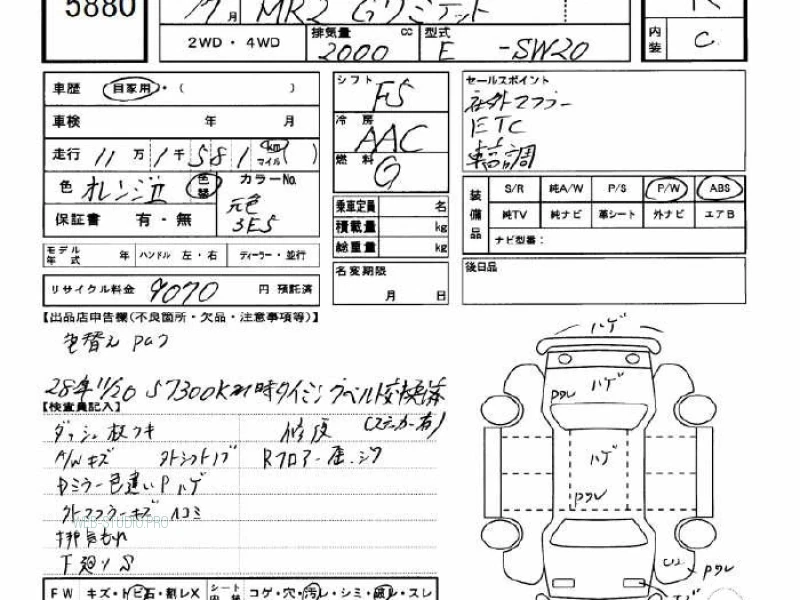 5880
7月 MR2 Gリミテッド
2WD・4WD 排気量 2000 cc 型式 E -SW20
内装 C
車歴 自家用・( )
車検 年 月
走行 11万1千581 km マイル ( )
色 オレンジII 色替 カラーNo. 元色 3E5
保証書 有・無
モデル年式 年 ハンドル 左・右 ディーラー・並行
リサイクル料金 9070 円 預託済
シフト F5
冷房 AAC
燃料 G
乗車定員 名
積載量 kg
総重量 kg
名変期限
月 日
セールスポイント
社外マフラー
ETC
車高調
装備品 S/R 純A/W P/S P/W ABS
純TV 純ナビ 革シート 外ナビ エアB
ナビ型番:
後日品
【出品店申告欄(不良箇所・欠品・注意事項等)】
色替え
28年11/20 57300K時タイミングベルト交換済
(ステッカー有)
【検査員記入】
ダッシュ板フキ 修復
A/Wキズ 外シフトノブ Rフロアー
Dミラー色違い P ハゲ
外マフラーキズ ハコミ
WEB-STUDIO.PRO
排気もれ
下廻りS
FW キズ・トビ石・割レX シート内 コゲ・穴・汚レ・シミ・破レ・スレ
ハゲ
ハゲ
ハゲ
U2